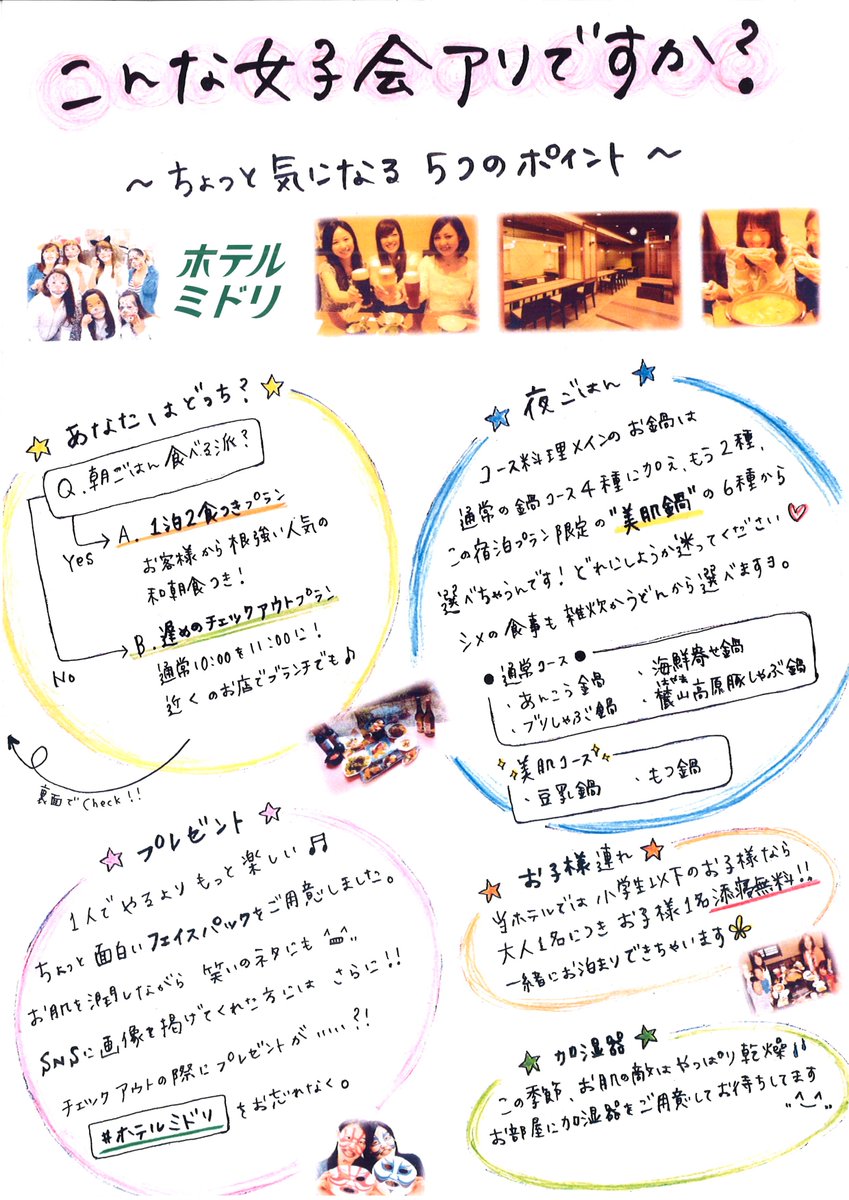 こんな女子会アリですか?
～ちょっと気になる 5つのポイント～
ホテル
ミドリ
あなたはどっち?
Q.朝ごはん食べる派?
Yes
A.1泊2食つきプラン
お客様から根強い人気の
和朝食つき!
No
B.遅めのチェックアウトプラン
通常10:00を11:00に!
近くのお店でブランチでも♪
裏面でCheck!!
夜ごはん
コース料理メインのお鍋は
通常の鍋コース4種に加え、もう2種、
この宿泊プラン限定の"美肌鍋"の6種から
選べちゃうんです!どれにしようか迷ってください♡
シメの食事も雑炊かうどんから選べますヨ。
●通常コース●
・あんこう鍋
・海鮮寄せ鍋
・ブリしゃぶ鍋
・麓山高原豚しゃぶ鍋
美肌コース
・豆乳鍋
・もつ鍋
プレゼント
1人でやるよりもっと楽しい♬
ちょっと面白いフェイスパックをご用意しました。
お肌を潤しながら笑いのネタにも
SNSに画像を掲げてくれた方には さらに!!
チェックアウトの際にプレゼントが……?!
#ホテルミドリ をお忘れなく。
お子様連れ
当ホテルでは小学生以下のお子様なら
大人1名につきお子様1名添寝無料!!
一緒にお泊まりできちゃいます
加湿器
この季節、お肌の敵はやっぱり乾燥!!
お部屋に加湿器をご用意してお待ちしてます